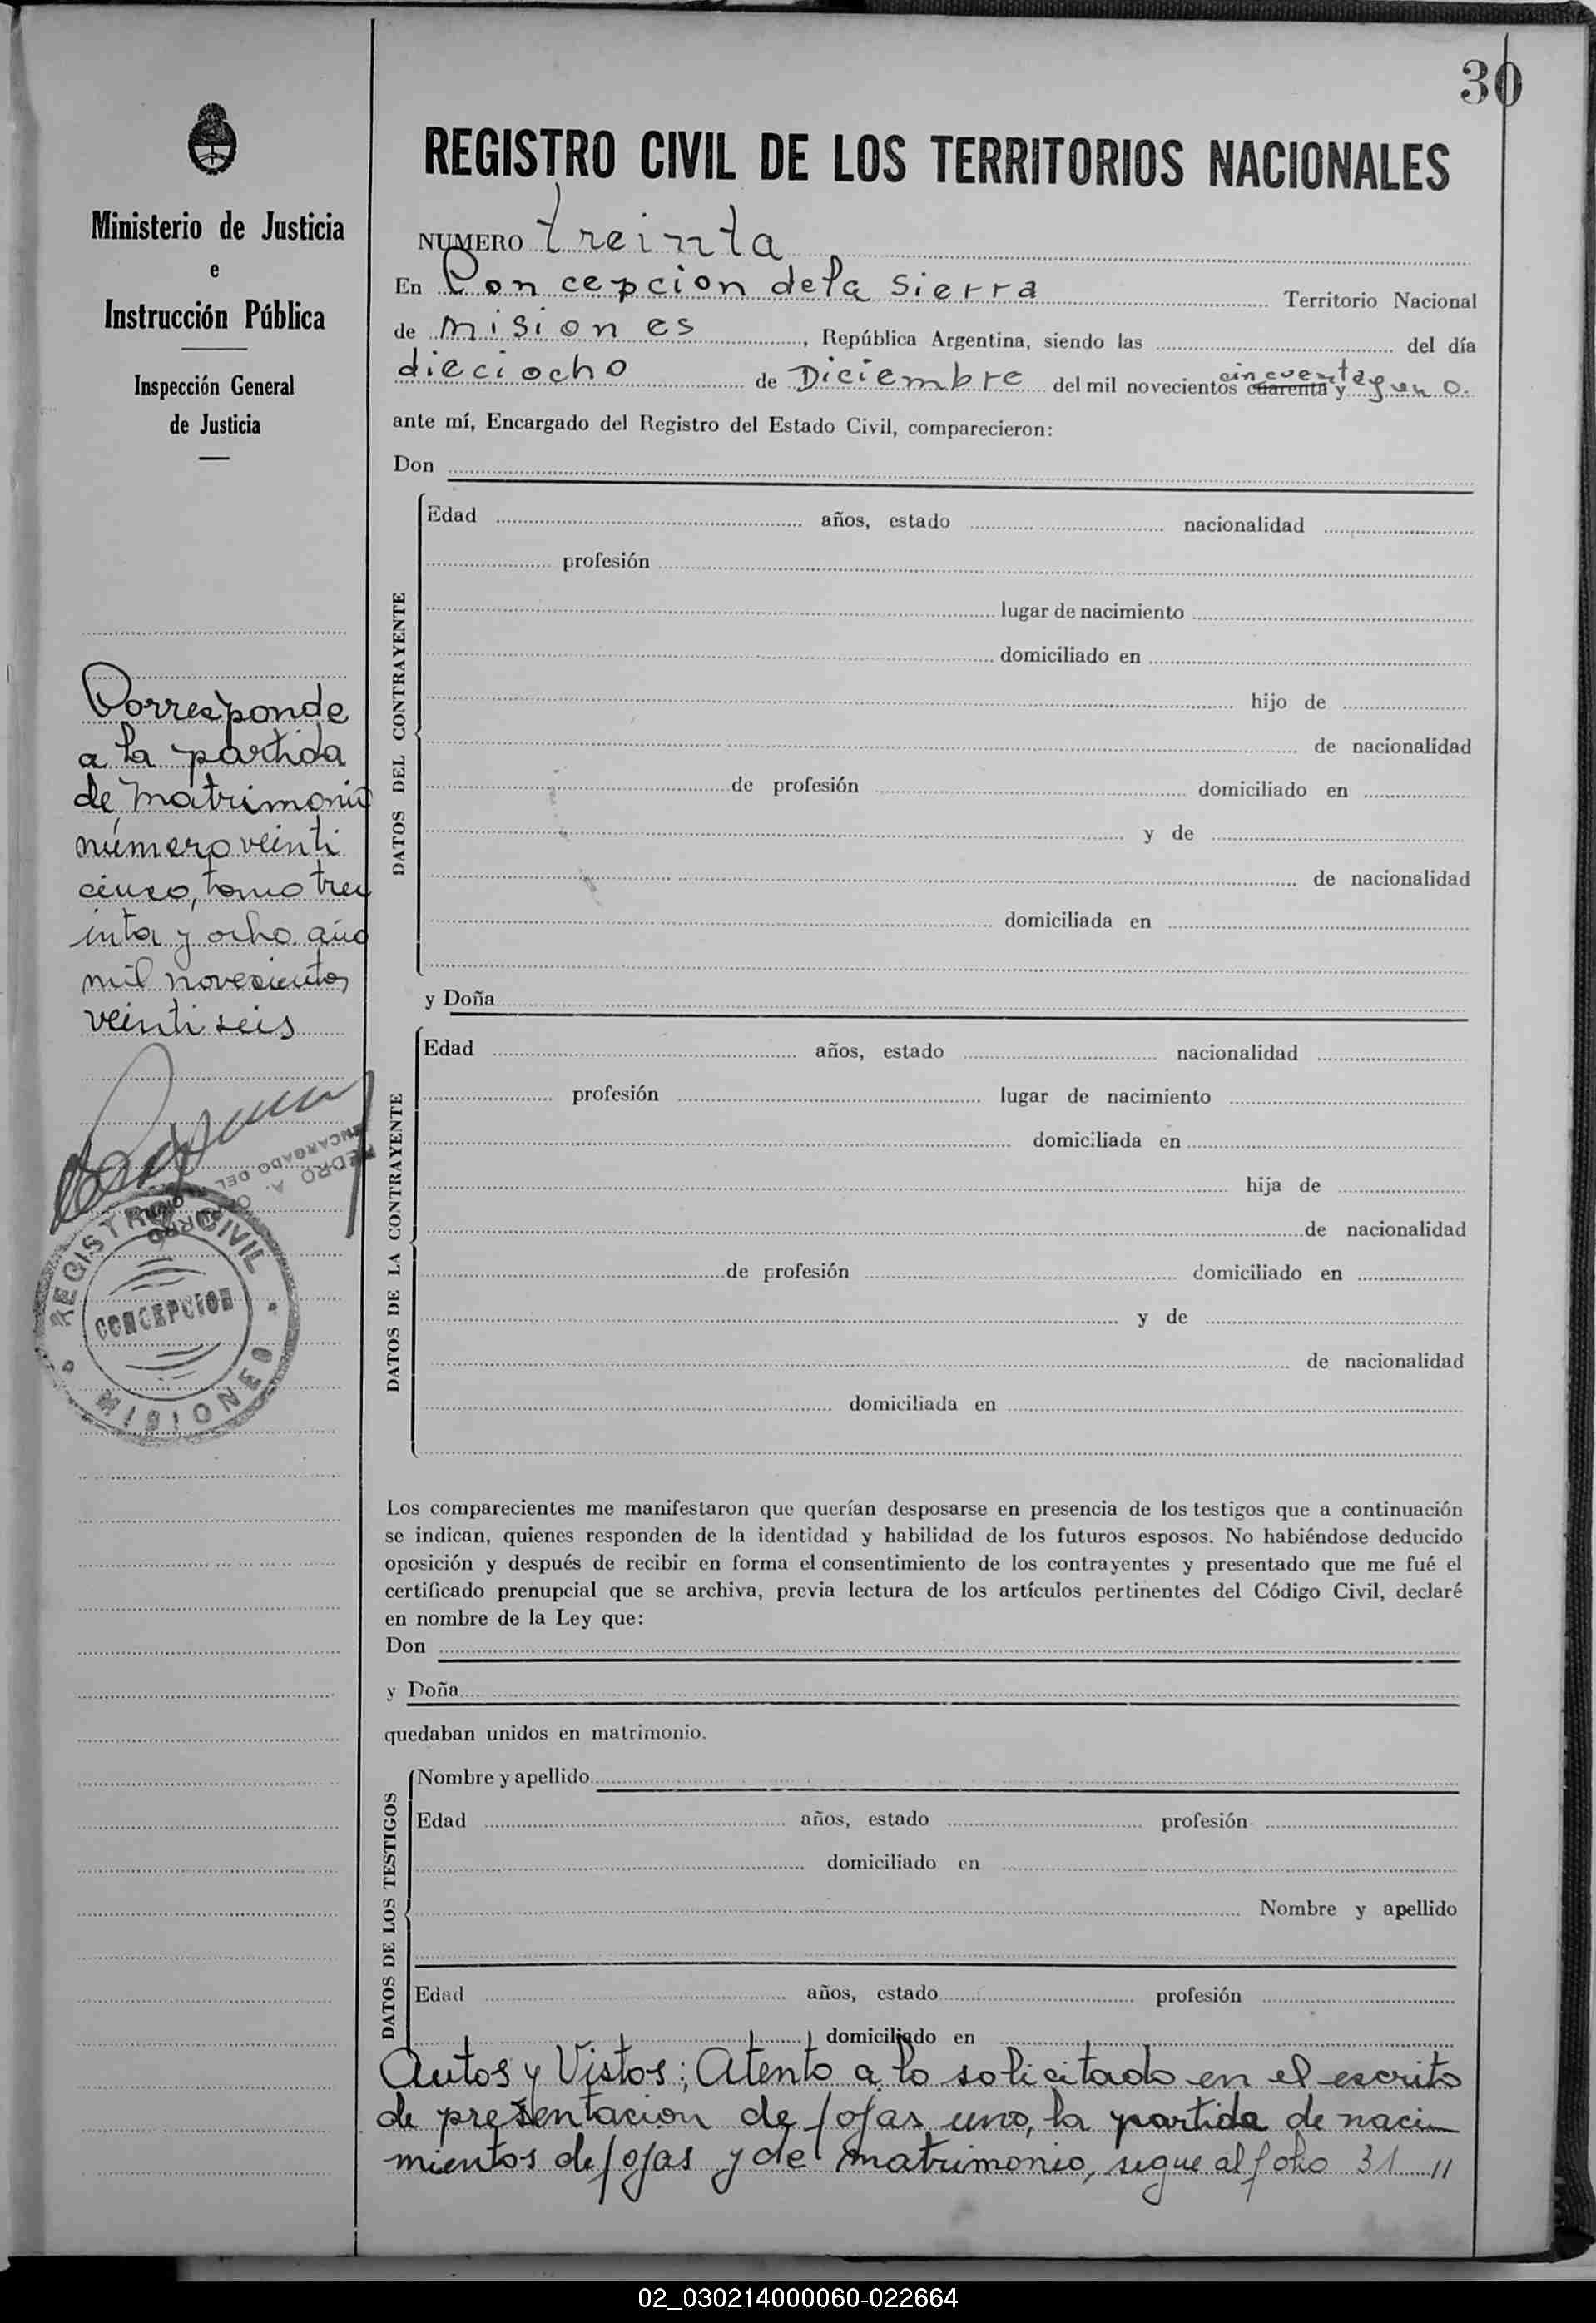 30
Ministerio de Justicia
e
Instrucción Pública
Inspección General
de Justicia
Corresponde
a la partida
de matrimonio
número veinti
cinco, tomo tre
inta y ocho año
mil novecientos
veinti seis
PEDRO A.
ENCARGADO DEL
REGISTRO CIVIL
CONCEPCION
MISIONES
REGISTRO CIVIL DE LOS TERRITORIOS NACIONALES
NUMERO treinta
En Concepcion de la Sierra Territorio Nacional
de Misiones, República Argentina, siendo las del día
dieciocho de Diciembre del mil novecientos cincuenta cuarenta y y uno.
ante mí, Encargado del Registro del Estado Civil, comparecieron:
Don
DATOS DEL CONTRAYENTE
Edad años, estado nacionalidad
profesión
lugar de nacimiento
domiciliado en
hijo de
de nacionalidad
de profesión domiciliado en
y de
de nacionalidad
domiciliada en
y Doña
DATOS DE LA CONTRAYENTE
Edad años, estado nacionalidad
profesión lugar de nacimiento
domiciliada en
hija de
de nacionalidad
de profesión domiciliado en
y de
de nacionalidad
domiciliada en
Los comparecientes me manifestaron que querían desposarse en presencia de los testigos que a continuación
se indican, quienes responden de la identidad y habilidad de los futuros esposos. No habiéndose deducido
oposición y después de recibir en forma el consentimiento de los contrayentes y presentado que me fué el
certificado prenupcial que se archiva, previa lectura de los artículos pertinentes del Código Civil, declaré
en nombre de la Ley que:
Don
y Doña
quedaban unidos en matrimonio.
DATOS DE LOS TESTIGOS
Nombre y apellido
Edad años, estado profesión
domiciliado en
Nombre y apellido
Edad años, estado profesión
domiciliado en
Autos y Vistos; Atento a lo solicitado en el escrito
de presentacion de fojas uno, la partida de naci
mientos de fojas y de matrimonio, sigue al folio 31 //
02_030214000060-022664